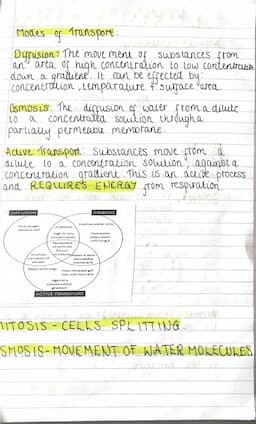 Modes of Transport:
Diffusion: The movement of substances from
an area of high concentration to low concentration
down a gradient. It can be effected by:
concentration, temparature + surface area.
Osmosis: The diffusion of water from a dilute
to a concentrated solution through a
partially permeable membrane.
Active Transport: Substances move from a
dilute to a concentration solution, against a
concentration gradient. This is an active process
and REQUIRES ENERGY from respiration.
DIFFUSION
OSMOSIS
ACTIVE TRANSPORT
ITOSIS - CELLS SPLITTING.
SMOSIS - MOVEMENT OF WATER MOLECULES